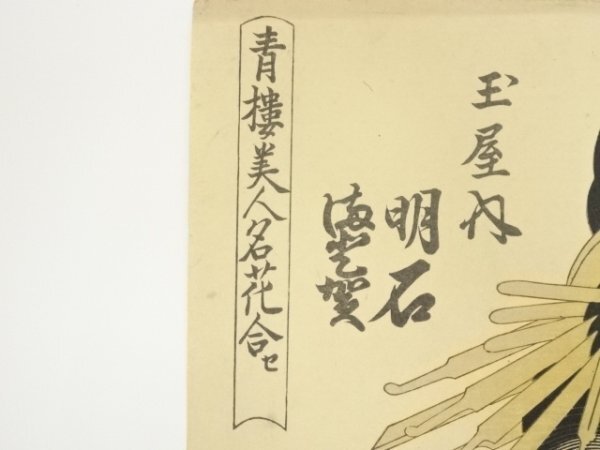 玉屋内
明石
青樓美人名花合セ